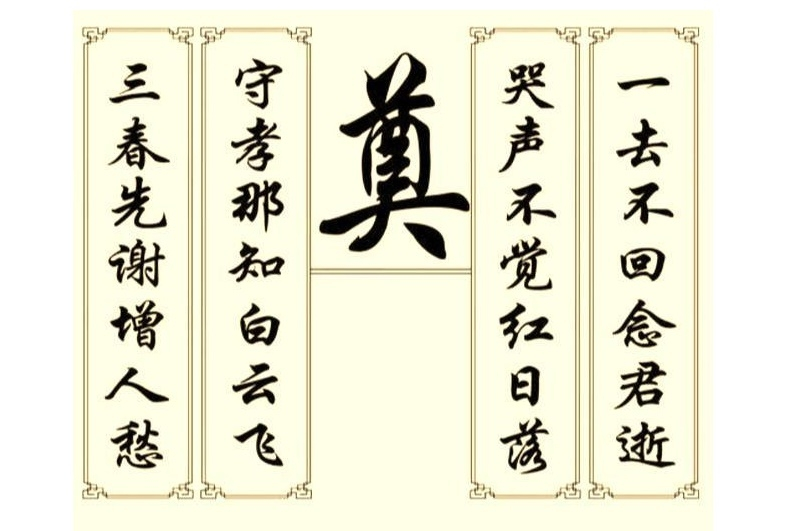 一去不回念君逝
哭声不觉红日落
奠
守孝那知白云飞
三春先谢增人愁